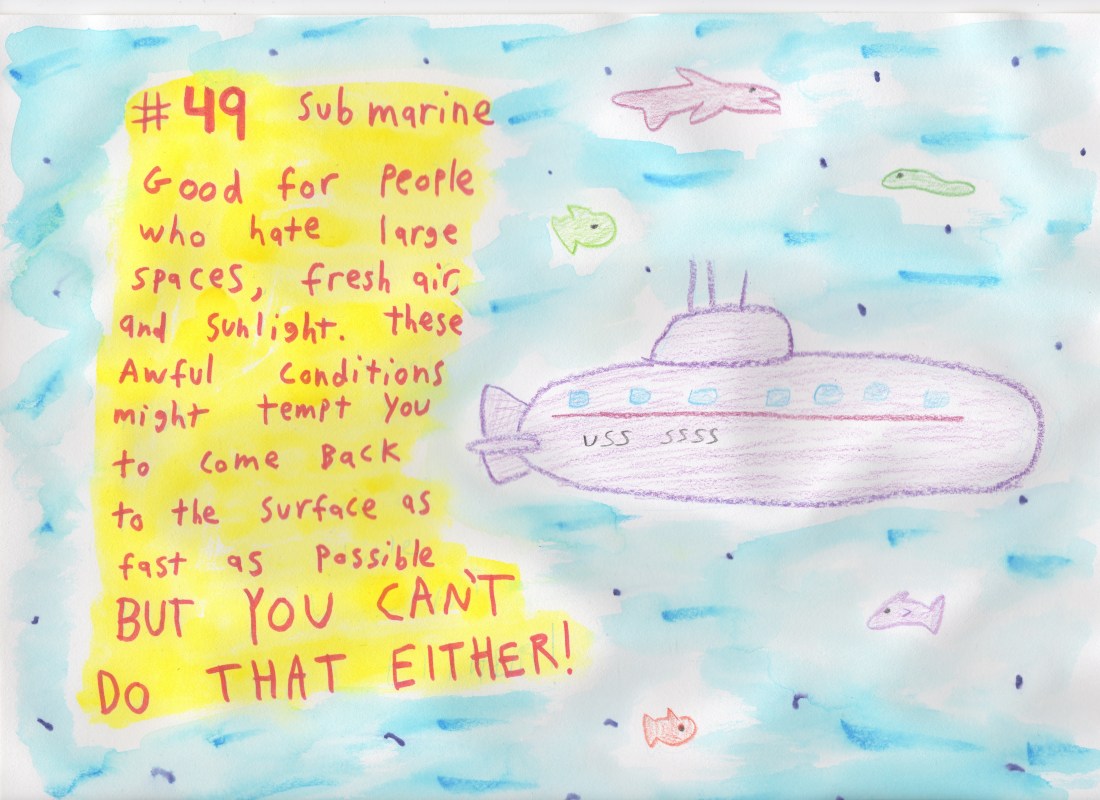 #49 Submarine
Good for People
who hate large
spaces, fresh air,
and sunlight. These
Awful conditions
might tempt you
to come Back
to the surface as
fast as possible
BUT YOU CAN'T
DO THAT EITHER!
USS SSSS